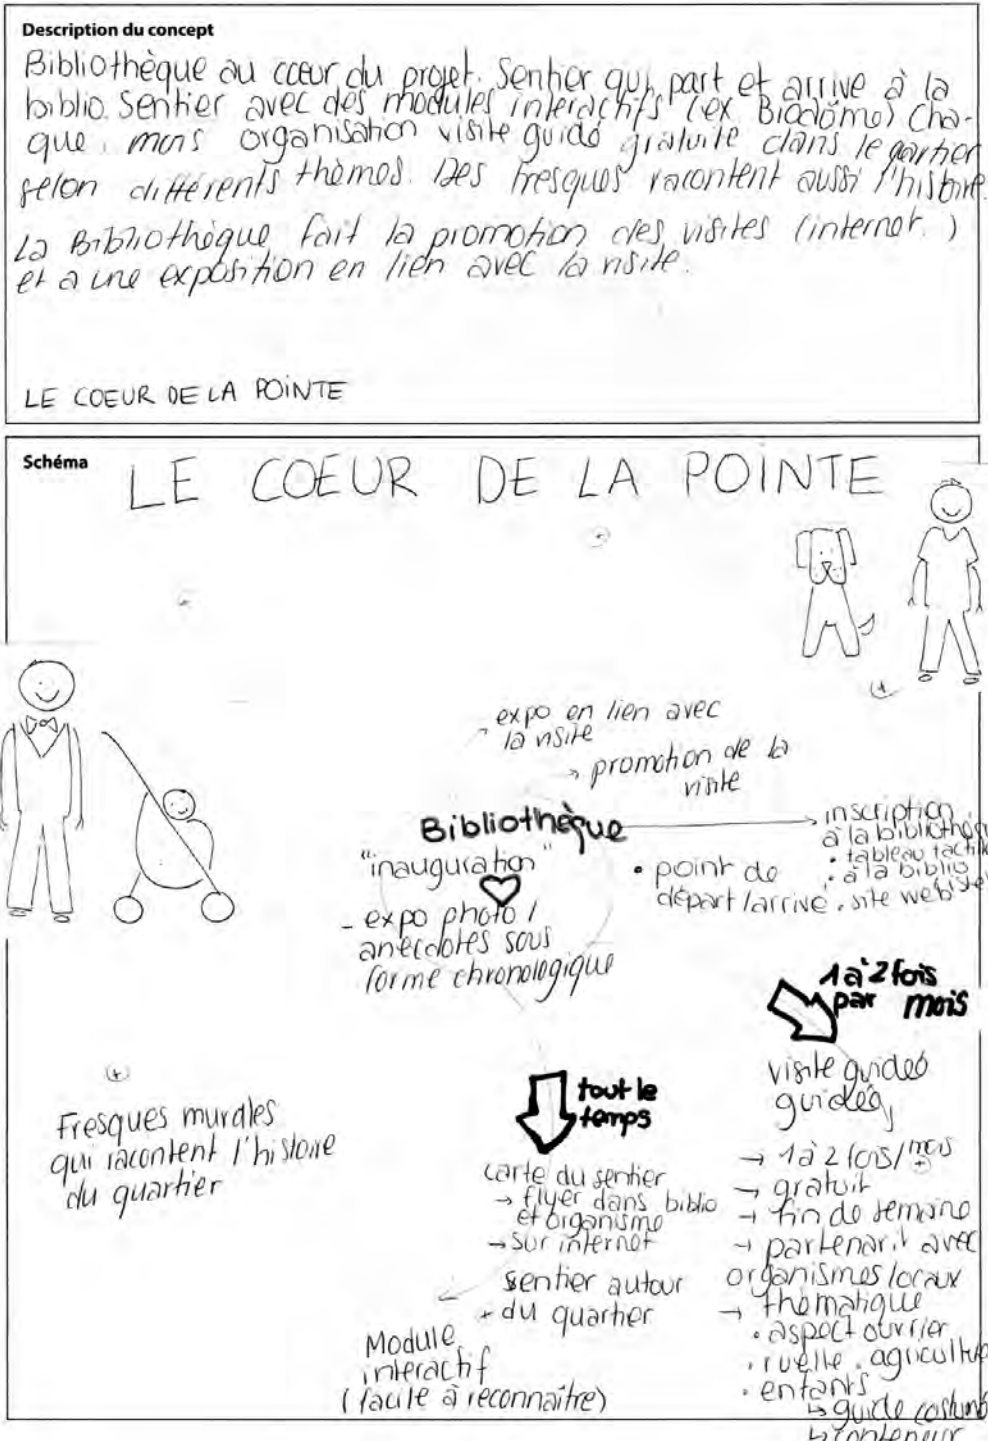 Description du concept
Bibliothèque au cœur du projet. Sentier qui part et arrive à la
biblio. Sentier avec des modules interactifs (ex Biodôme) Cha-
que mois organisation visite guidé gratuite dans le quartier
selon différents thèmes. Des fresques racontent aussi l'histoire.
La Bibliothèque fait la promotion des visites (internet.)
et a une exposition en lien avec la visite.
LE COEUR DE LA POINTE
Schéma
LE COEUR DE LA POINTE
expo en lien avec
la visite
→ promotion de la
visite
Bibliothèque
"inauguration"
- expo photo /
anecdotes sous
forme chronologique
• point de
départ/arrivé
inscription
à la biblioth
• tableau tactil
• à la biblio
• site web
1 à 2 fois
par mois
visite guideo
guidée,
→ 1 à 2 fois/mois
→ gratuit
→ fin de semaine
→ partenar.t avec
organismes locaux
→ thématique
• aspect ouvrier
• ruelle • agricultu
• enfants
↳ guide costum
↳ conteneur
tout le
temps
carte du sentier
→ flyer dans biblio
et organisme
→ sur internet
sentier autour
+ du quartier
Module
interactif
(facile à reconnaître)
(+)
Fresques murales
qui racontent l'histoire
du quartier